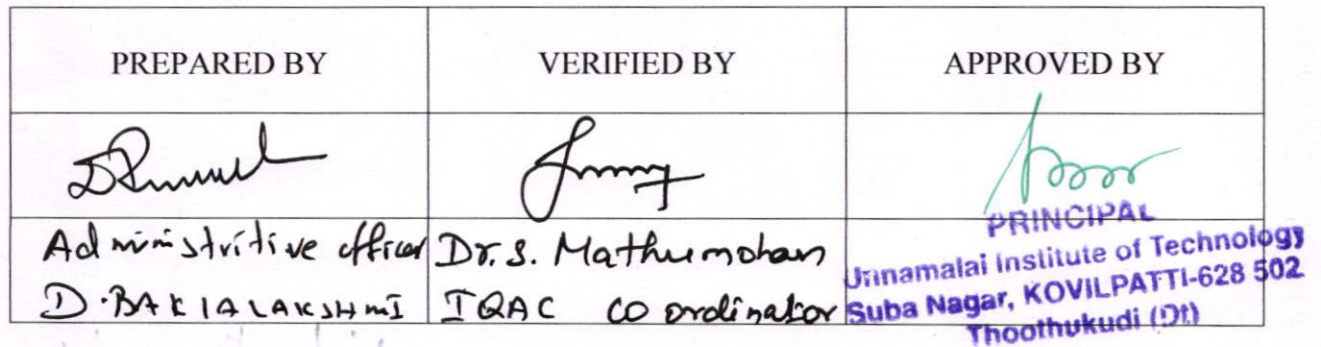 PREPARED BY
VERIFIED BY
APPROVED BY
Administritive officer
D.BAKIALAKSHMI
Dr.S. Mathumohan
IQAC Coordinator
PRINCIPAL
Unnamalai Institute of Technology
Suba Nagar, KOVILPATTI-628 502
Thoothukudi (Dt)